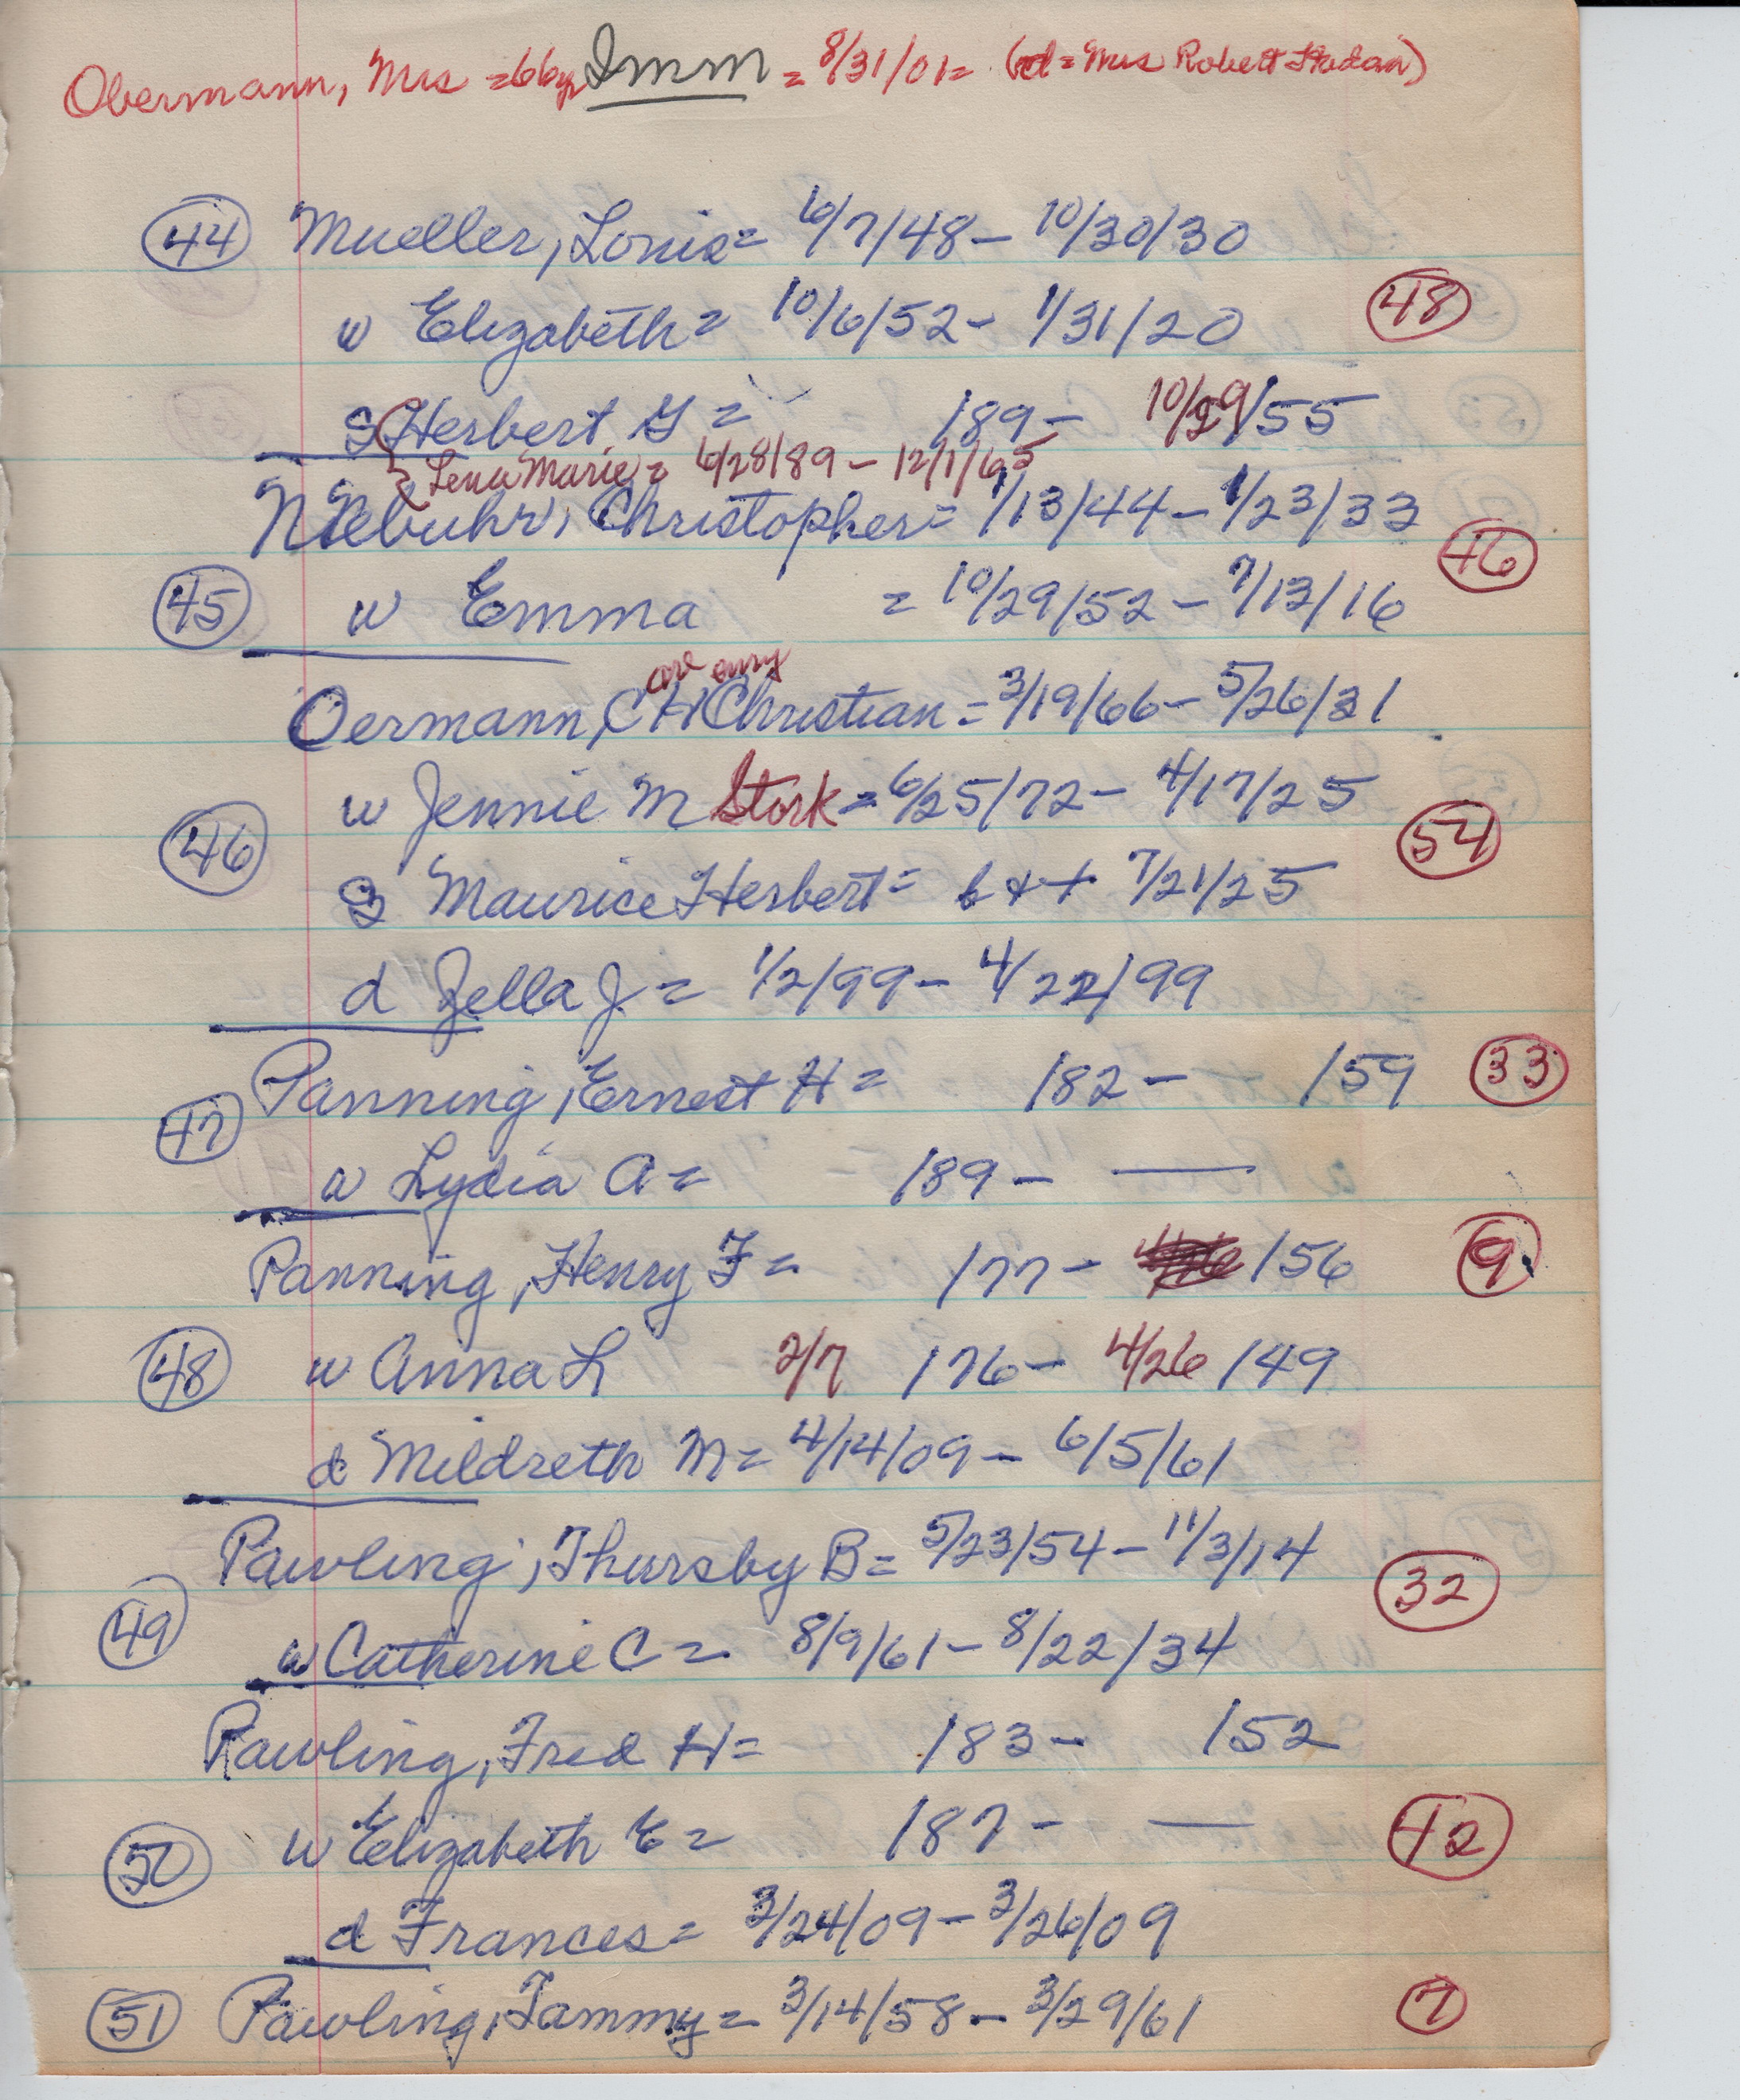 Obermann, Mrs = 66y Imm = 8/31/01 = (d = Mrs Robert Hadan)
44 Mueller, Louis = 6/7/48 - 10/30/30
w Elizabeth = 10/6/52 - 1/31/20 48
s Herbert G = /89 - 10/29/55
Lena Marie = 6/28/89 - 12/1/65
Niebuhr, Christopher = 1/13/44 - 1/23/33
46
45 w Emma = 10/29/52 - 7/13/16
Oermann, C H Christian = 3/19/66 - 5/26/31
w Jennie M Stork = 6/25/72 - 4/17/25
46 54
s Maurice Herbert = b + + 7/21/25
d Zella J = 1/2/99 - 4/22/99
Panning, Ernest H = /82 - /59 33
47
w Lydia A = /89 - —
Panning, Henry F = /77 - /56 9
48 w Anna L 2/7 /76 - 4/26 /49
d Mildreth M = 4/14/09 - 6/5/61
Pawling, Thursby B = 5/23/54 - 11/3/14
32
49 w Catherine C = 8/9/61 - 8/22/34
Pawling, Fred H = /83 - /52
50 w Elizabeth E = /87 - — 42
d Frances = 3/24/09 - 3/26/09
51 Pawling, Tammy = 3/14/58 - 3/29/61 7